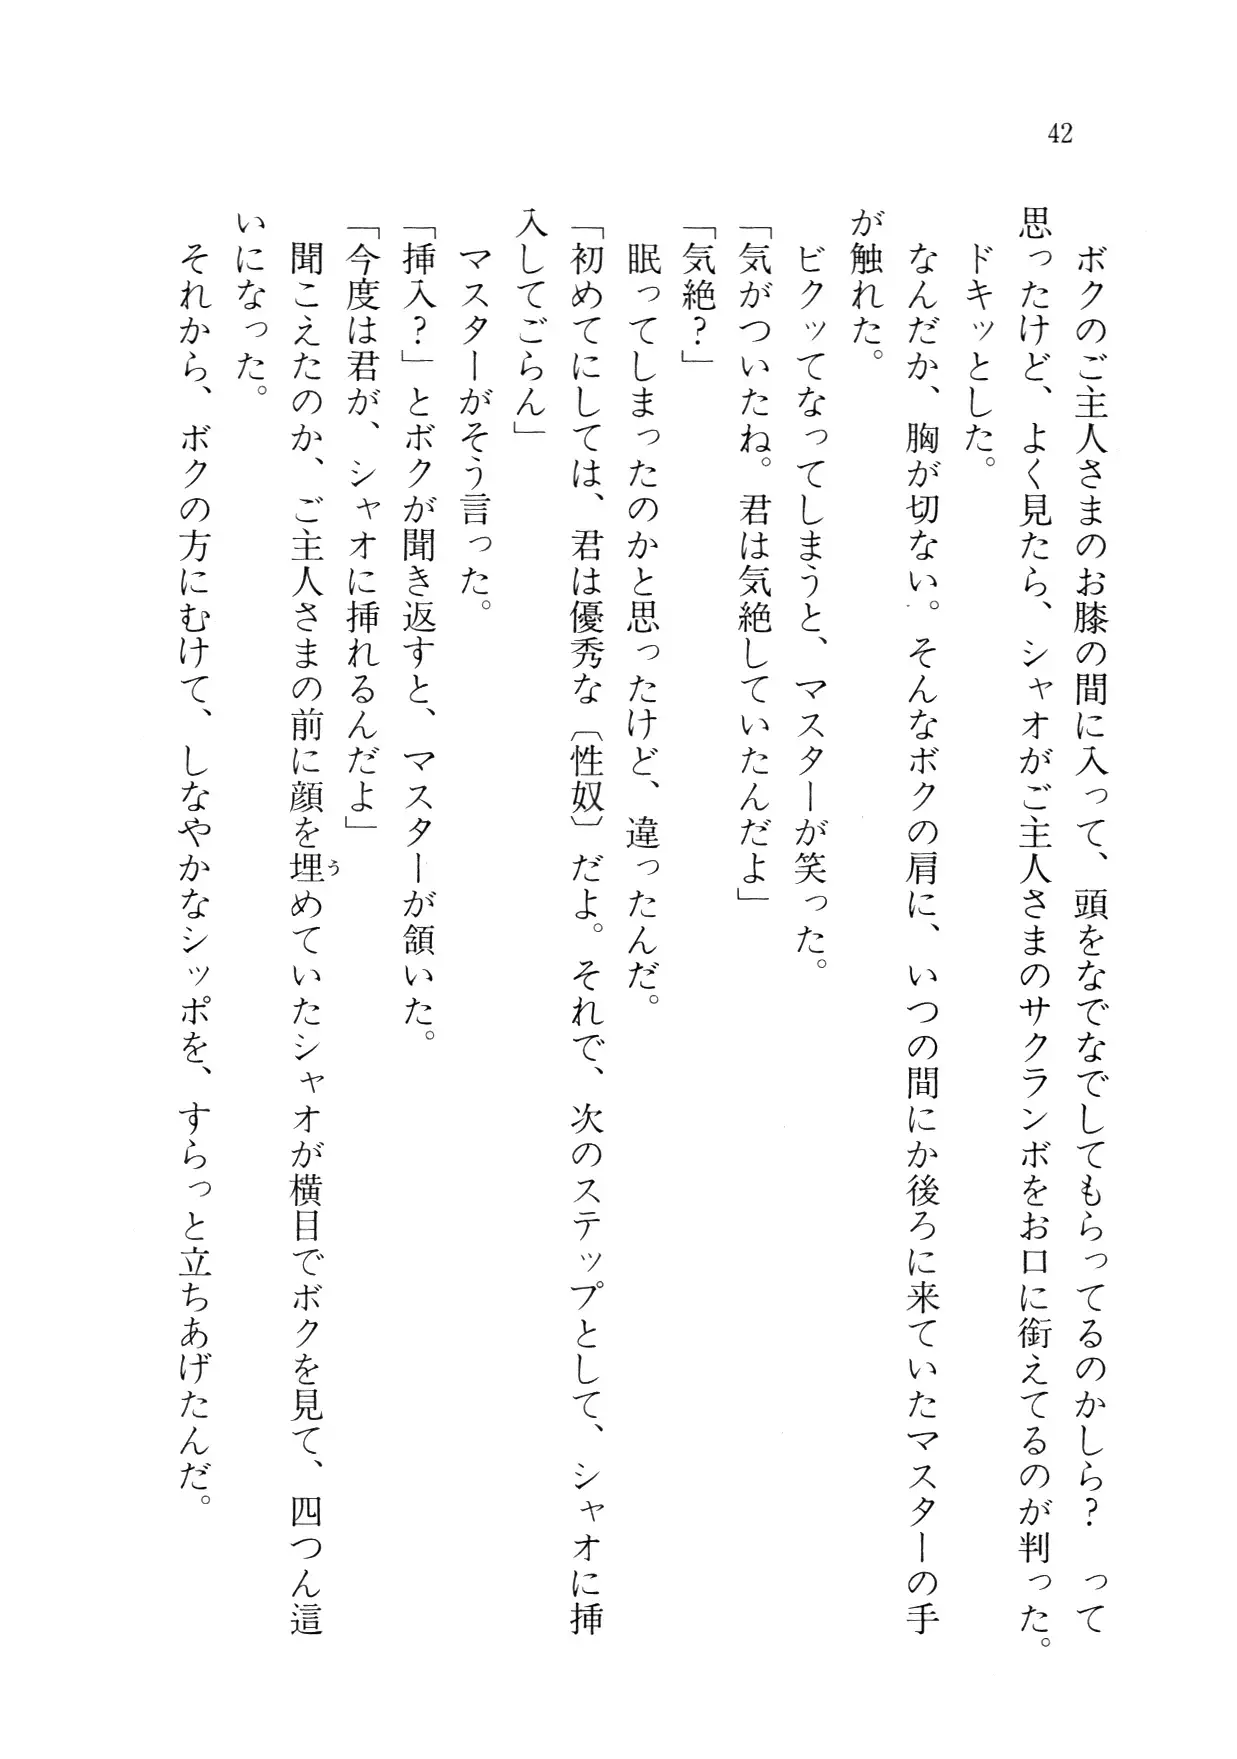 42
ボクのご主人さまのお膝の間に入って、頭をなでなでしてもらってるのかしら？　って
思ったけど、よく見たら、シャオがご主人さまのサクランボをお口に銜えてるのが判った。
ドキッとした。
なんだか、胸が切ない。そんなボクの肩に、いつの間にか後ろに来ていたマスターの手
が触れた。
ビクッてなってしまうと、マスターが笑った。
「気がついたね。君は気絶していたんだよ」
「気絶？」
眠ってしまったのかと思ったけど、違ったんだ。
「初めてにしては、君は優秀な〔性奴〕だよ。それで、次のステップとして、シャオに挿
入してごらん」
マスターがそう言った。
「挿入？」とボクが聞き返すと、マスターが頷いた。
「今度は君が、シャオに挿れるんだよ」
聞こえたのか、ご主人さまの前に顔を埋うめていたシャオが横目でボクを見て、四つん這
いになった。
それから、ボクの方にむけて、しなやかなシッポを、すらっと立ちあげたんだ。